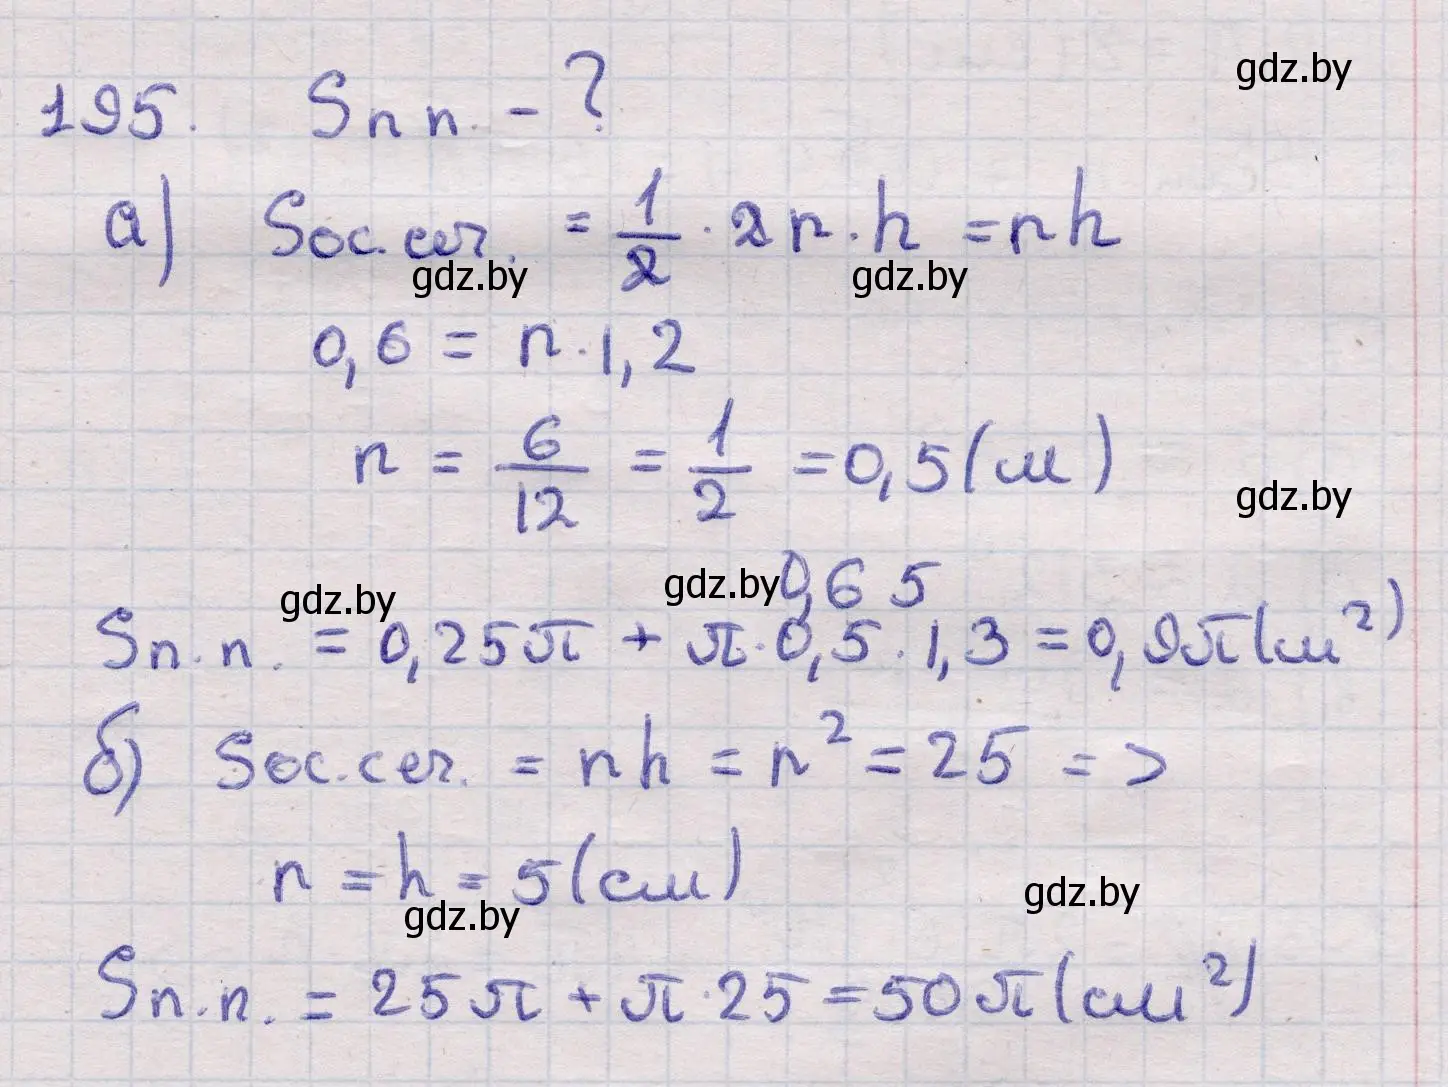 195. Sп п. - ?
gdz.by
а) Sос.сеч. = 1/2 · 2r · h = rh
gdz.by gdz.by
0,6 = r · 1,2
r = 6/12 = 1/2 = 0,5 (м)
gdz.by
gdz.by gdz.by 0,65
Sп.п. = 0,25π + π · 0,5 · 1,3 = 0,9π (м²)
б) Sос.сеч. = rh = r² = 25 =>
r = h = 5 (см)
gdz.by gdz.by
Sп.п. = 25π + π · 25 = 50π (см²)